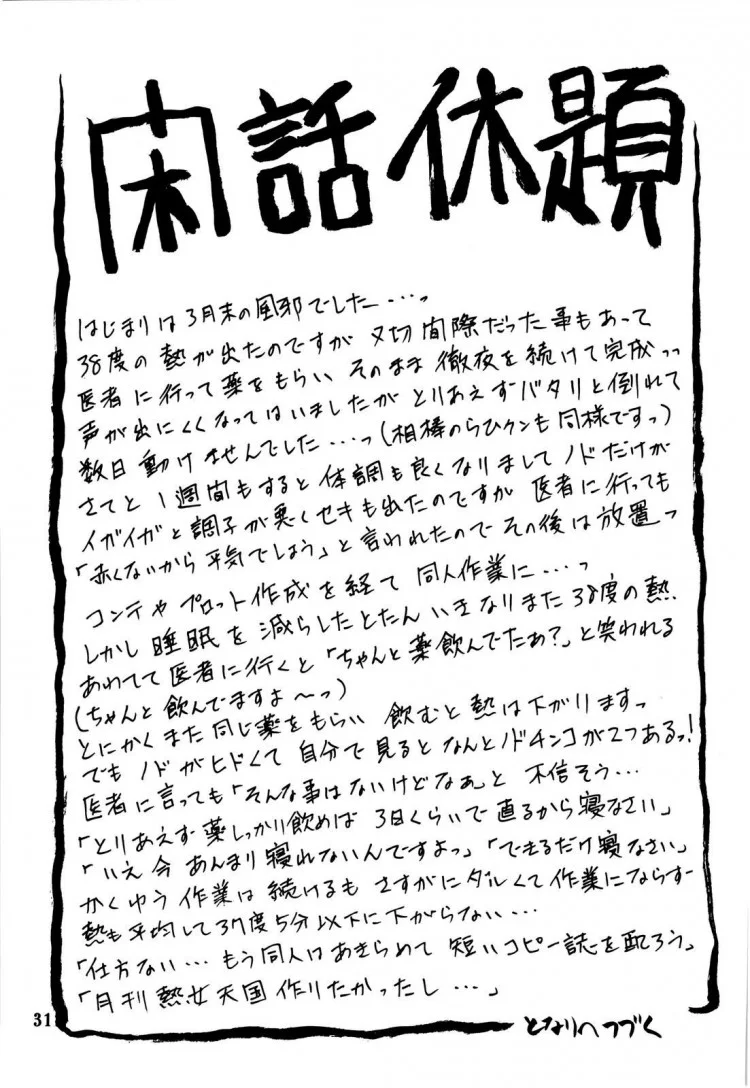 閑話休題
はじまりは3月末の風邪でした…っ
38度の熱が出たのですが 〆切間際だった事もあって
医者に行って薬をもらい そのまま徹夜を続けて完成っっ
声が出にくくなってはいましたが とりあえずバタリと倒れて
数日動けませんでした…っ(相棒のらひクンも同様ですっ)
さてと 1週間もすると 体調も良くなりまして ノドだけが
イガイガと調子が悪くセキも出たのですが 医者に行っても
「赤くないから平気でしょう」と言われたので その後は放置っ
コンテやプロット作成を経て 同人作業に…っ
しかし睡眠を減らしたとたん いきなりまた38度の熱
あわてて医者に行くと「ちゃんと薬飲んでたあ?」と笑われる
(ちゃんと飲んでますよ～っ)
とにかくまた同じ薬をもらい 飲むと熱は下がりますっ
でもノドがヒドくて 自分で見ると なんとノドチンコが2つあるっ!
医者に言っても「そんな事はないけどなぁ」と 不信そう…
「とりあえず薬しっかり飲めば 3日くらいで直るから寝なさい」
「いえ今あんまり寝れないんですよっ」「できるだけ寝なさい」
かくゆう作業は続けるも さすがにダルくて作業にならず
熱も平均して37度5分以下に下がらない…
「仕方ない…もう同人はあきらめて 短いコピー誌を配ろう」
「月刊熱女天国作りたかったし…」
となりへつづく
31